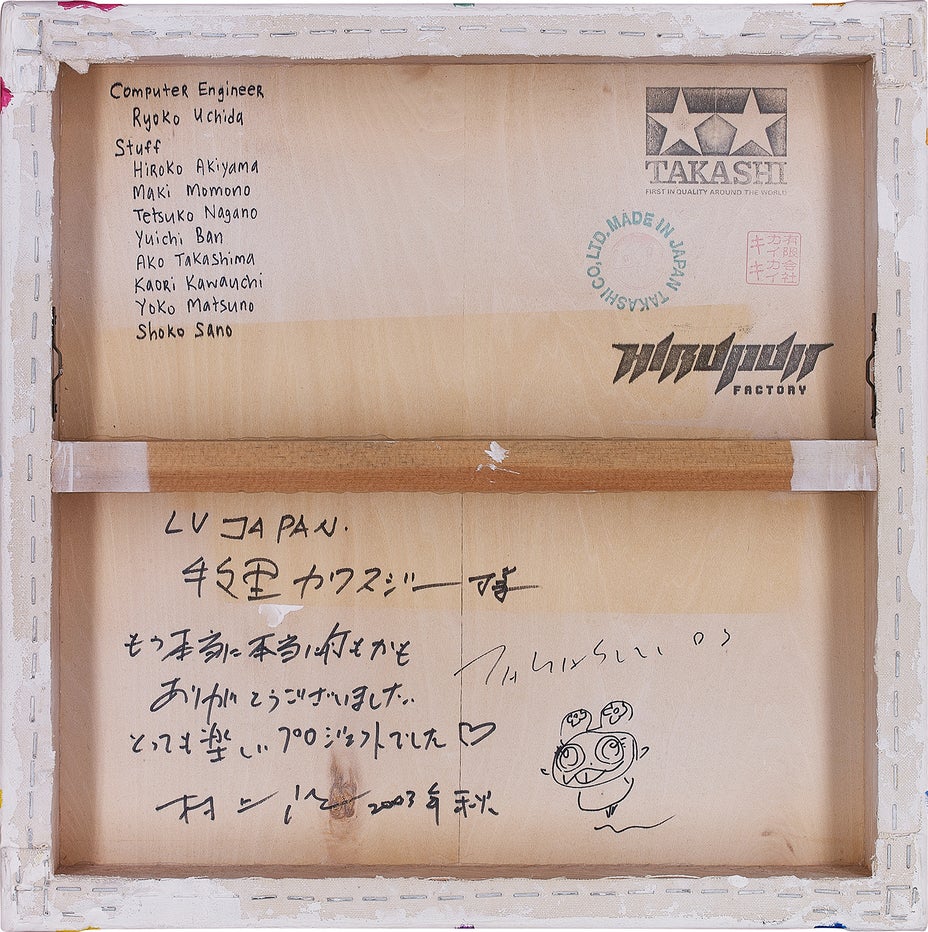 Computer Engineer
Ryoko Uchida
Stuff
Hiroko Akiyama
Maki Momono
Tetsuko Nagano
Yuichi Ban
Ako Takashima
Kaori Kawauchi
Yoko Matsuno
Shoko Sano
TAKASHI
FIRST IN QUALITY AROUND THE WORLD
TAKASHI CO,LTD. MADE IN JAPAN
有限会社
カイカイ
キキ
HIROPON
FACTORY
LV JAPAN.
牧里カワスジー様
もう本当に本当に何もかも
ありがとうございました。
とっても楽しいプロジェクトでした♡
村上隆 2003年秋
TAKASHI 03